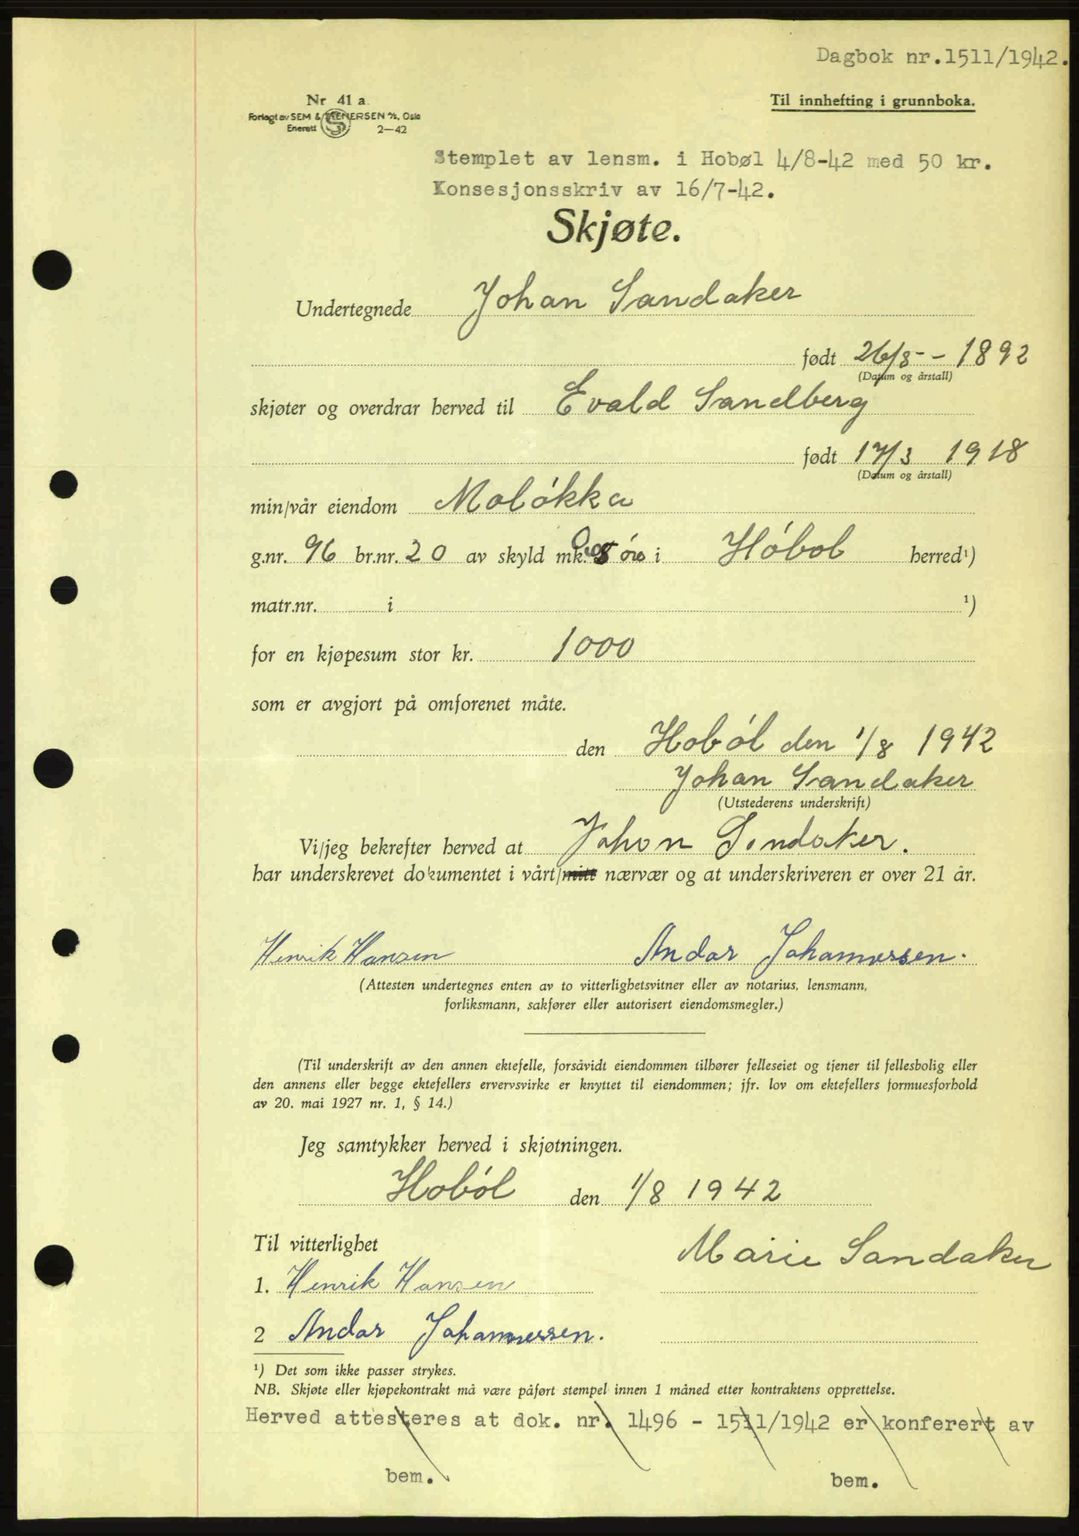 Dagbok nr.1511/1942.
Nr 41 a.
Til innhefting i grunnboka.
Forlagt av SEM & STENERSEN A/S, Oslo
Enerett 2—42
Stemplet av lensm. i Hobøl 4/8-42 med 50 kr.
Konsesjonsskriv av 16/7-42.
Skjøte.
Undertegnede Johan Sandaker
født 26/8 - - 1892
(Datum og årstall)
skjøter og overdrar herved til Evald Sandberg
født 17/3 1918
(Datum og årstall)
min/vår eiendom Moløkka
g.nr. 96 br.nr. 20 av skyld mk. øre i Hóbol herred¹)
matr.nr. i ¹)
for en kjøpesum stor kr. 1000
som er avgjort på omforenet måte.
den Hoból den 1/8 1942
Johan Sandaker
(Utstederens underskrift)
Vi/jeg bekrefter herved at Johan Sandaker.
har underskrevet dokumentet i vårt/mitt nærvær og at underskriveren er over 21 år.
Henrik Hansen Andar Johannessen.
(Attesten undertegnes enten av to vitterlighetsvitner eller av notarius, lensmann,
forliksmann, sakfører eller autorisert eiendomsmegler.)
(Til underskrift av den annen ektefelle, forsåvidt eiendommen tilhører felleseiet og tjener til fellesbolig eller
den annens eller begge ektefellers ervervsvirke er knyttet til eiendommen; jfr. lov om ektefellers formuesforhold
av 20. mai 1927 nr. 1, § 14.)
Jeg samtykker herved i skjøtningen.
Hoból den 1/8 1942
Til vitterlighet
Marie Sandaker
1. Henrik Hansen
2 Andar Johannessen.
¹) Det som ikke passer strykes.
NB. Skjøte eller kjøpekontrakt må være påført stempel innen 1 måned etter kontraktens opprettelse.
Herved attesteres at dok. nr. 1496 - 1511/1942 er konferert av
bem. bem.